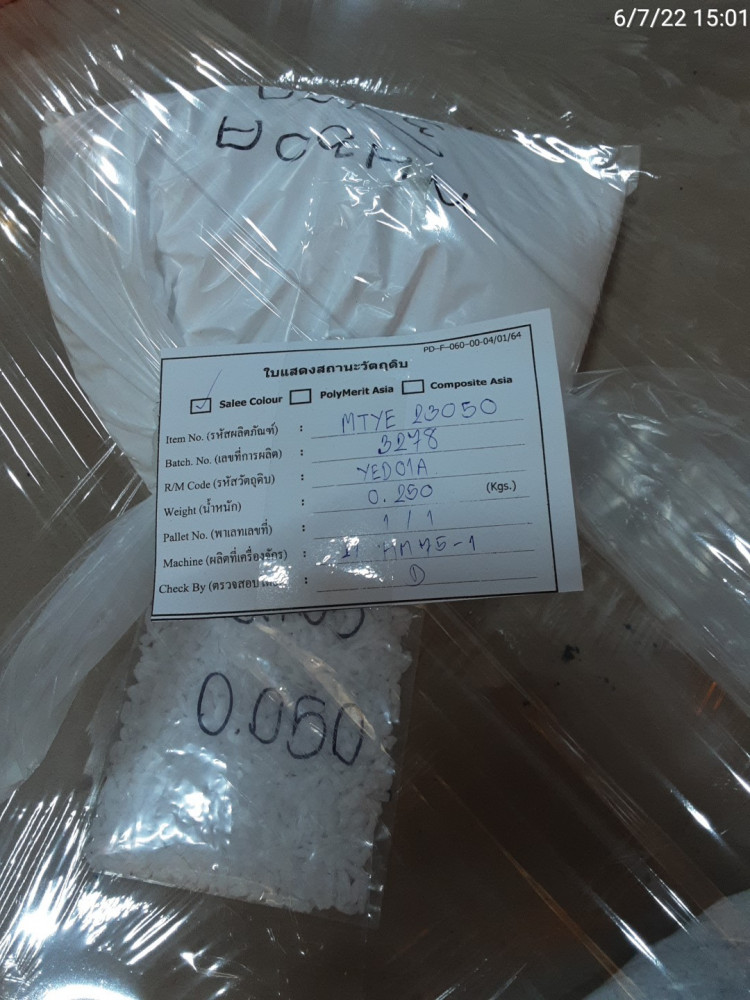 6/7/22 15:01
PD-F-060-00-04/01/64
ใบแสดงสถานะวัตถุดิบ
Salee Colour PolyMerit Asia Composite Asia
Item No. (รหัสผลิตภัณฑ์) : MTYE 23050
Batch. No. (เลขที่การผลิต) : 3278
R/M Code (รหัสวัตถุดิบ) : YED01A
Weight (น้ำหนัก) : 0.250 (Kgs.)
Pallet No. (พาเลทเลขที่) : 1/1
Machine (ผลิตที่เครื่องจักร) :
Check By (ตรวจสอบ :
0.050